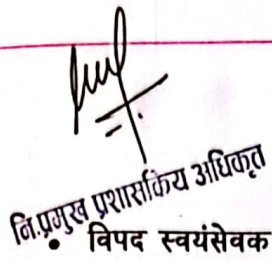 नि.प्रमुख प्रशासकिय अधिकृत
• विपद स्वयंसेवक